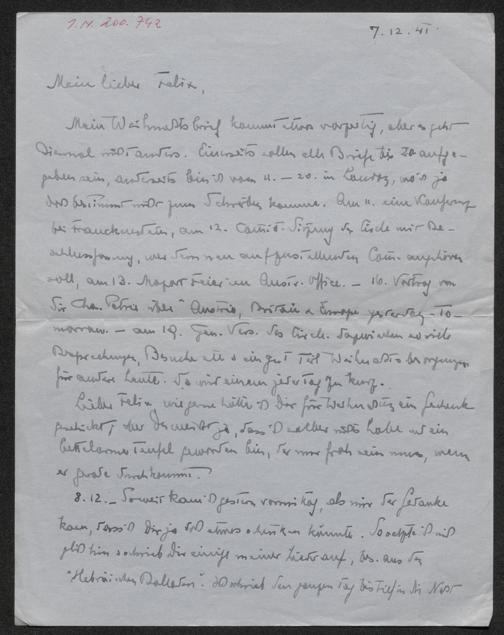 I.N. 200.742
7.12.41.
Mein lieber Felix,
Mein Weihnachtsbrief kommt etwas vorzeitig, aber es geht
diesmal nicht anders. Einerseits sollen alle Briefe bis 20 aufge-
geben sein, anderseits bin ich vom 11. – 20. in London, wo ich ja
doch bestimmt nicht zum Schreiben komme. Am 11. eine Konferenz
bei Franckenstein, am 12. Comité-Sitzung der mit Be-
schlussfassung, wer dem neu aufzustellenden Com. angehören
soll, am 13. Mozart Feier im Austr. Office. – 16. Vortrag von
Sir Cha. Petrie über "Austria, Britain & Europe yesterday – To-
morrow. – am 19. Gen. Vers. des dazwischen so viele
Besprechungen, Besuche etc & ein gut Teil Weihnachtsbesorgungen
für andere Leute. Da wird einem jeder Tag zu kurz.
Lieber Felix wie gerne hätte ich Dir für Weihnachten ein Geschenk
geschickt, aber Du weisst ja, dass ich selber nichts habe und ein
bettelarmer Teufel geworden bin, der nur froh sein muss, wenn
er gerade durchkommt.
8.12. – Soweit kam ich gestern vormittag, als mir der Gedanke
kam, dass ich Dir ja doch etwas schenken könnte. So setzte ich mich
gleich hin & schrieb Dir einige meiner Lieder auf, bes. aus den
"Hebräischen Balladen". Ich schrieb den ganzen Tag bis tief in die Nacht